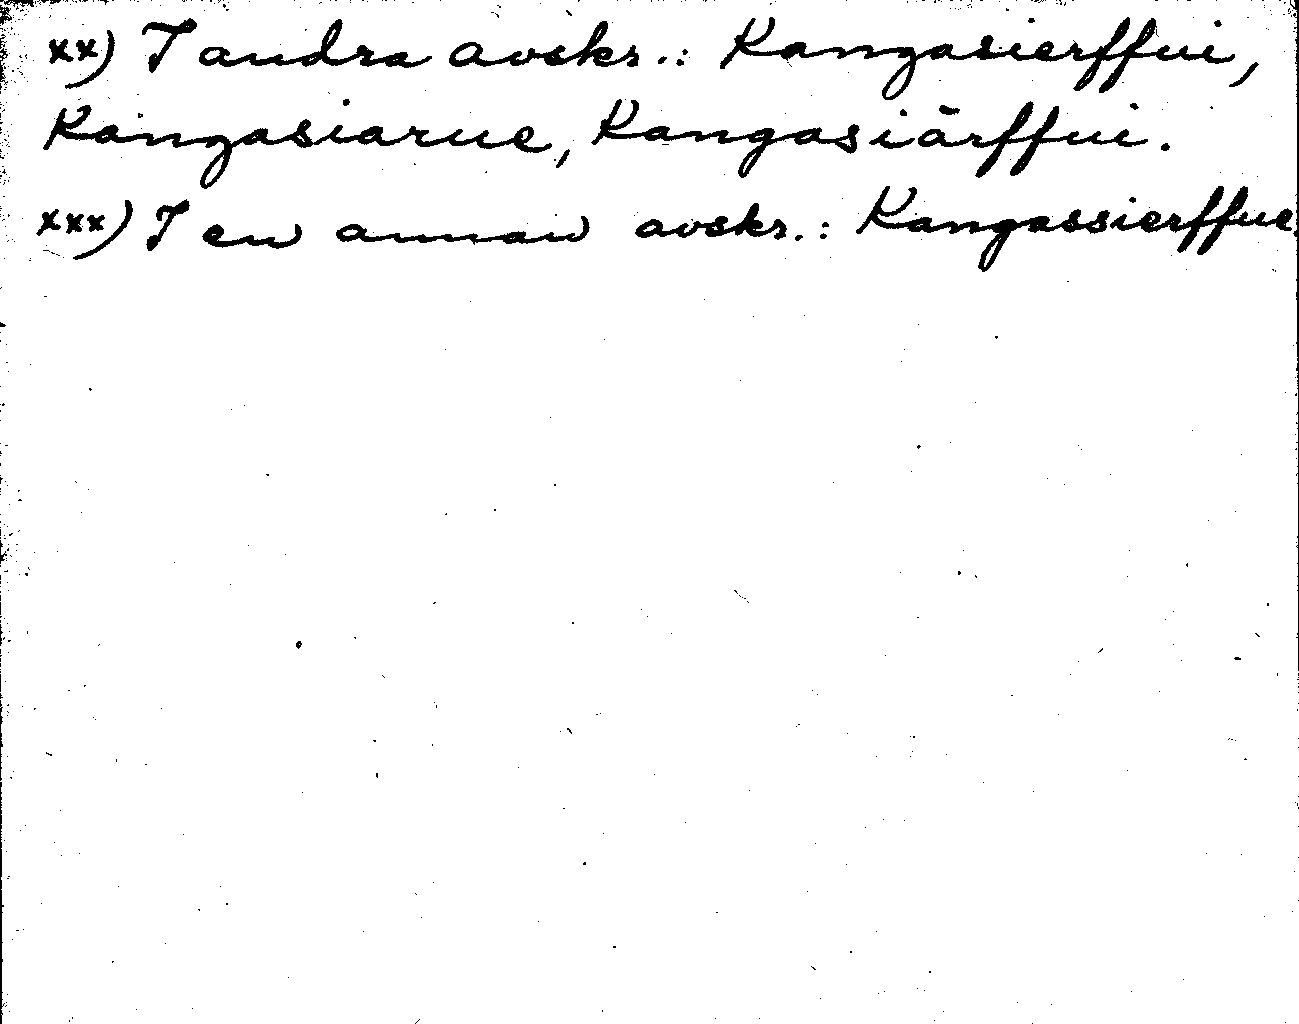 xx) I andra avskr.: Kangasierffui,
Kangasiarue, Kangasiärffui.
xxx) I en annan avskr.: Kangassierffue.